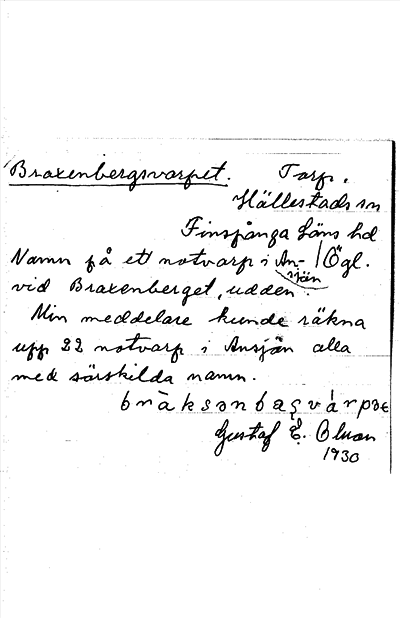 Braxenbergsvarpet. Tarp.
Hällestads sn
Finspånga läns hd
Namn på ett notvarp i An- / Ögl.
sjön
vid Braxenberget, udden.
Min meddelare kunde räkna
upp 22 notvarp i Ansjön alla
med särskilda namn.
Gustaf E. Olson
1930